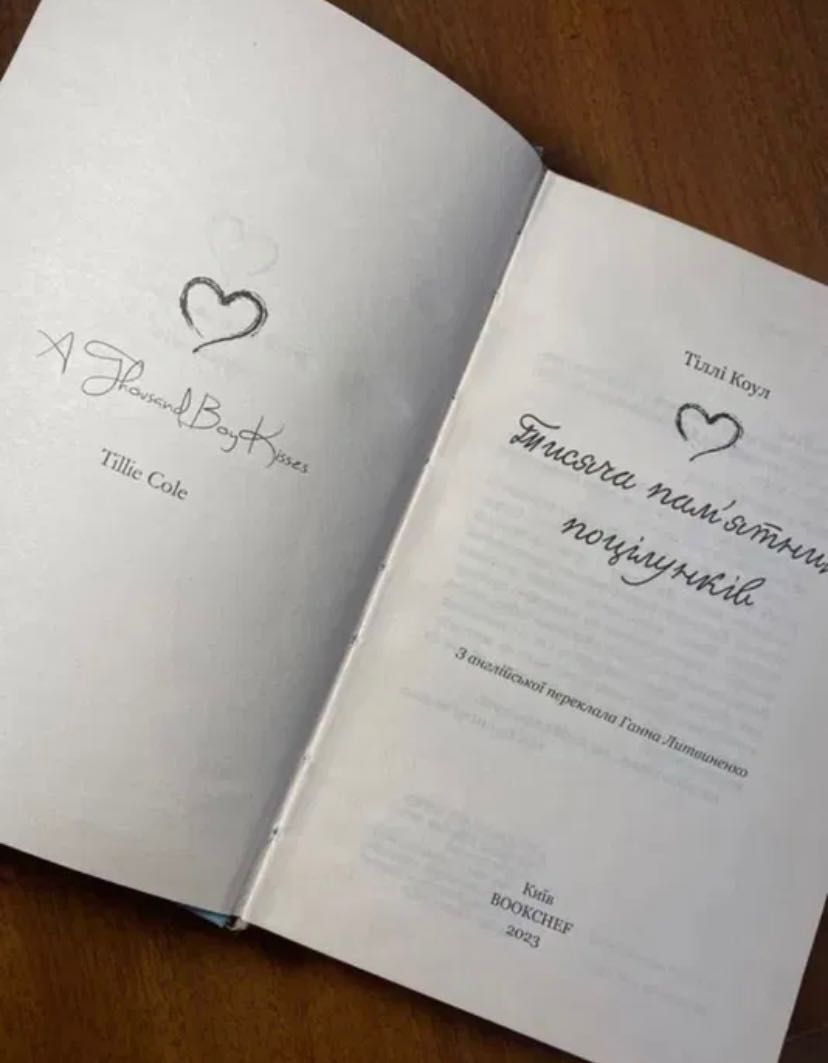 A Thousand Boy Kisses
Tillie Cole
Тіллі Коул
Тисяча пам'ятних
поцілунків
З англійської переклала Ганна Литвиненко
Київ
BOOKCHEF
2023